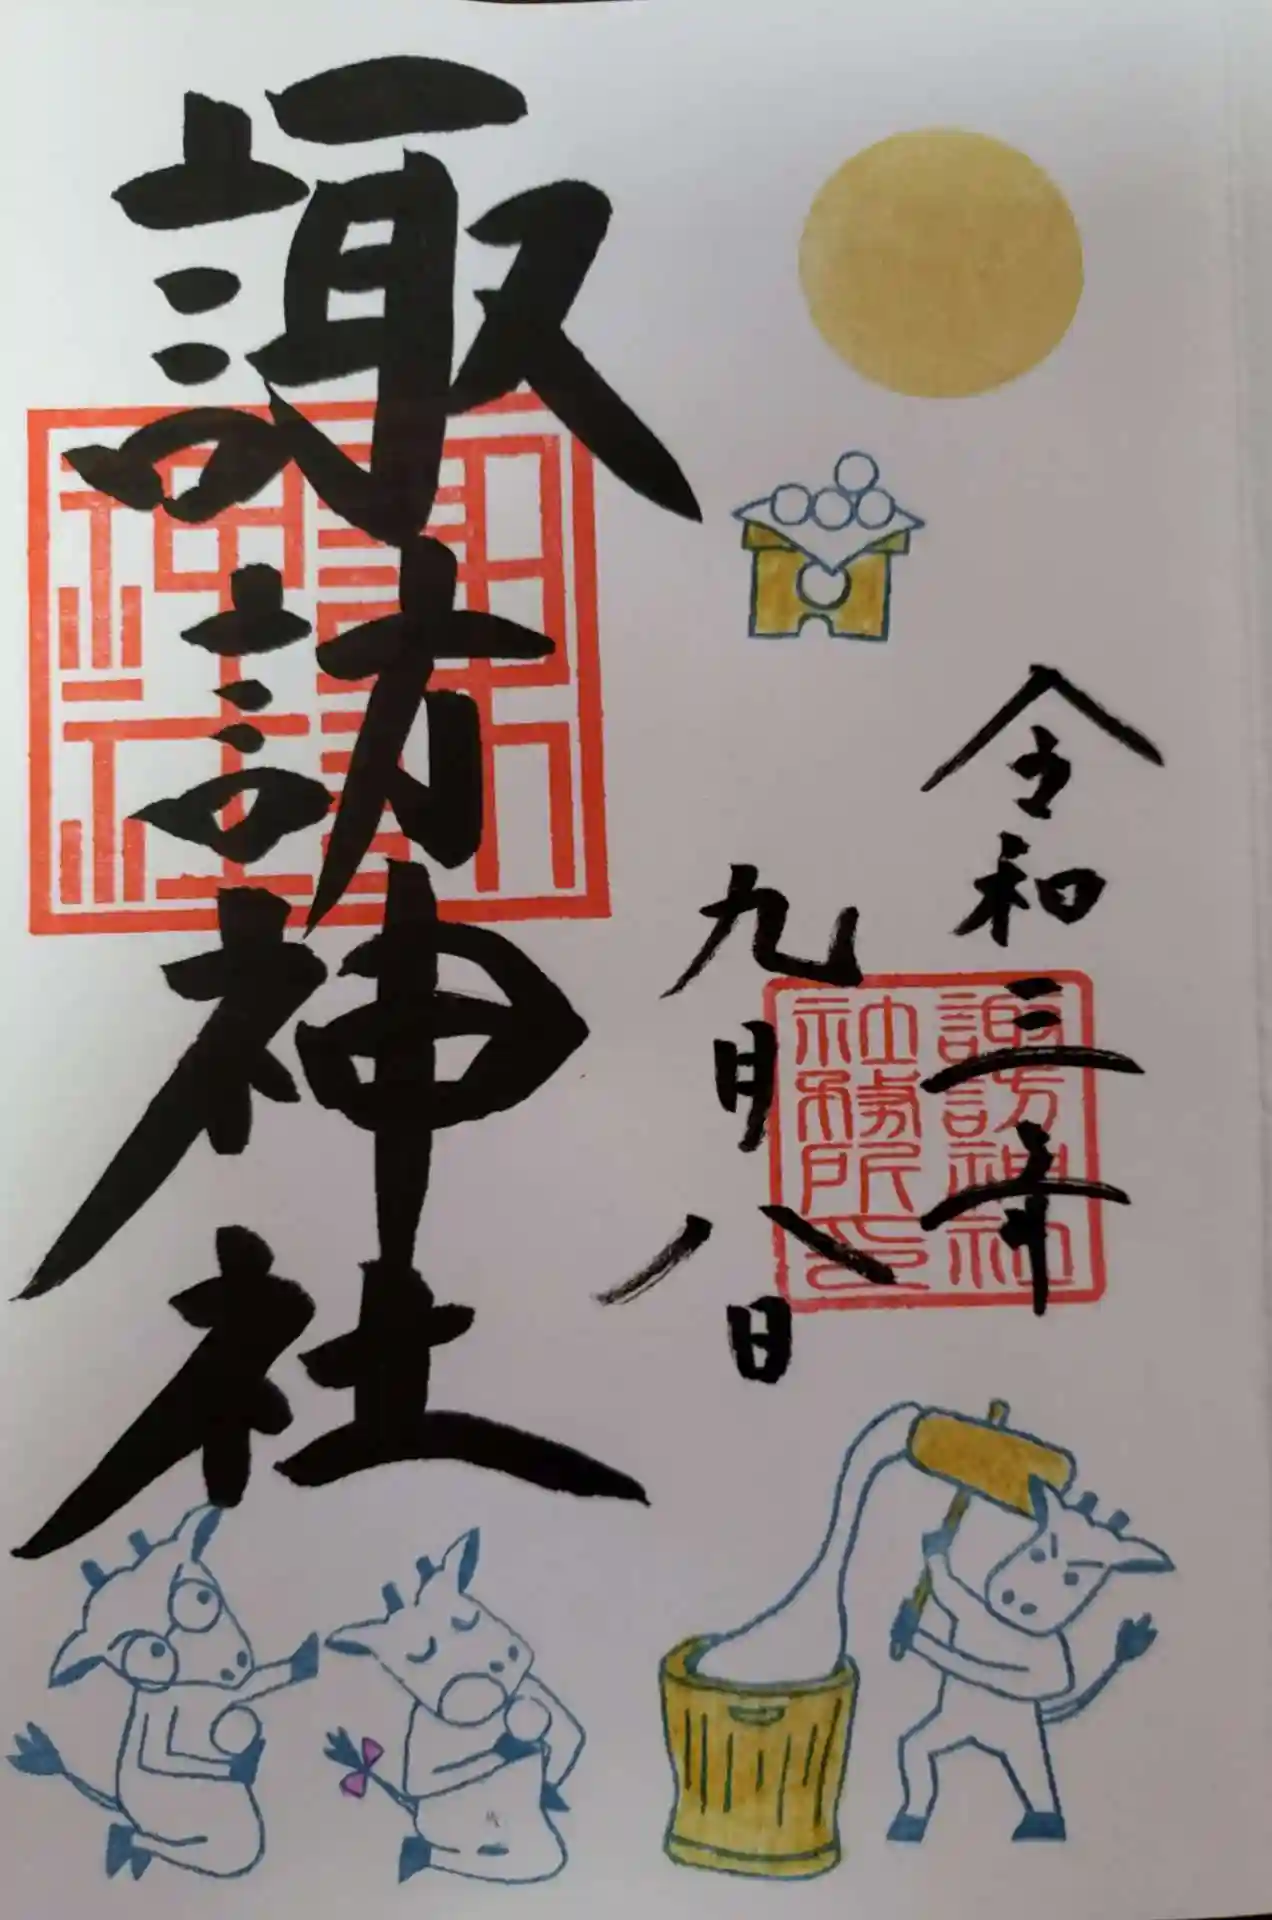 令和三年
九月八日
諏訪神社
諏訪神社
社務所印
諏訪
神社